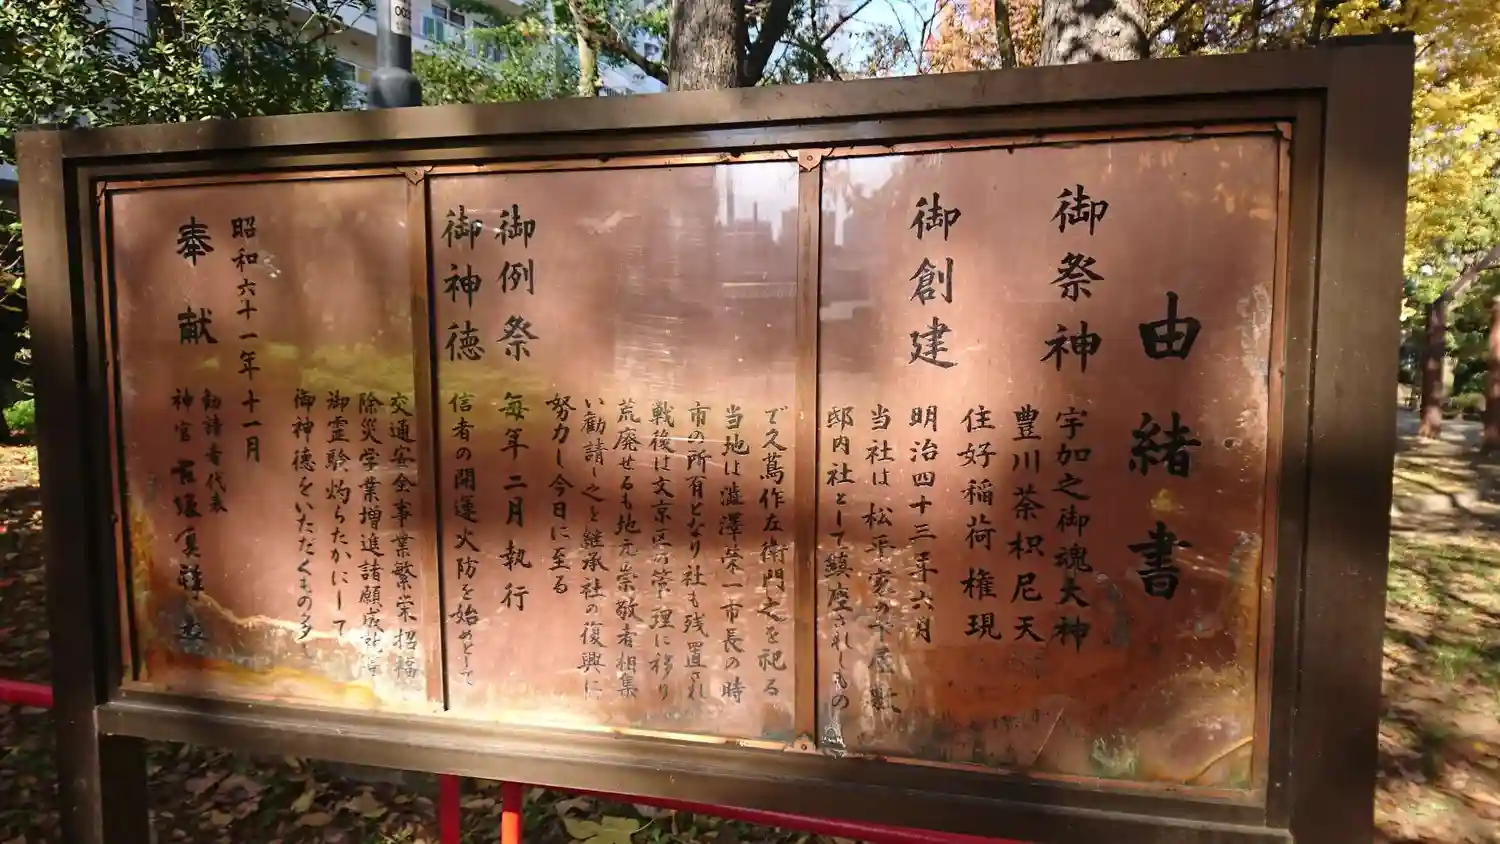 由緒書
御祭神
宇加之御魂大神
豊川荼枳尼天
住好稲荷権現
御創建
明治四十三年六月
当社は松平家の下屋敷
邸内社として鎮座されしもの
で久蔦作左衛門之を祀る
当地は澁澤栄一市長の時
市の所有となり社も残置され
戦後は文京区の管理に移り
荒廃せるも地元崇敬者相集
い勧請し之を継承社の復興に
努力し今日に至る
御例祭 毎年二月執行
御神徳
信者の開運火防を始めとして
交通安全事業繁栄招福
除災学業増進諸願成就等
御霊験灼らたかにして
御神徳をいただくもの多し
昭和六十一年十一月
奉献
勧請者代表
神官